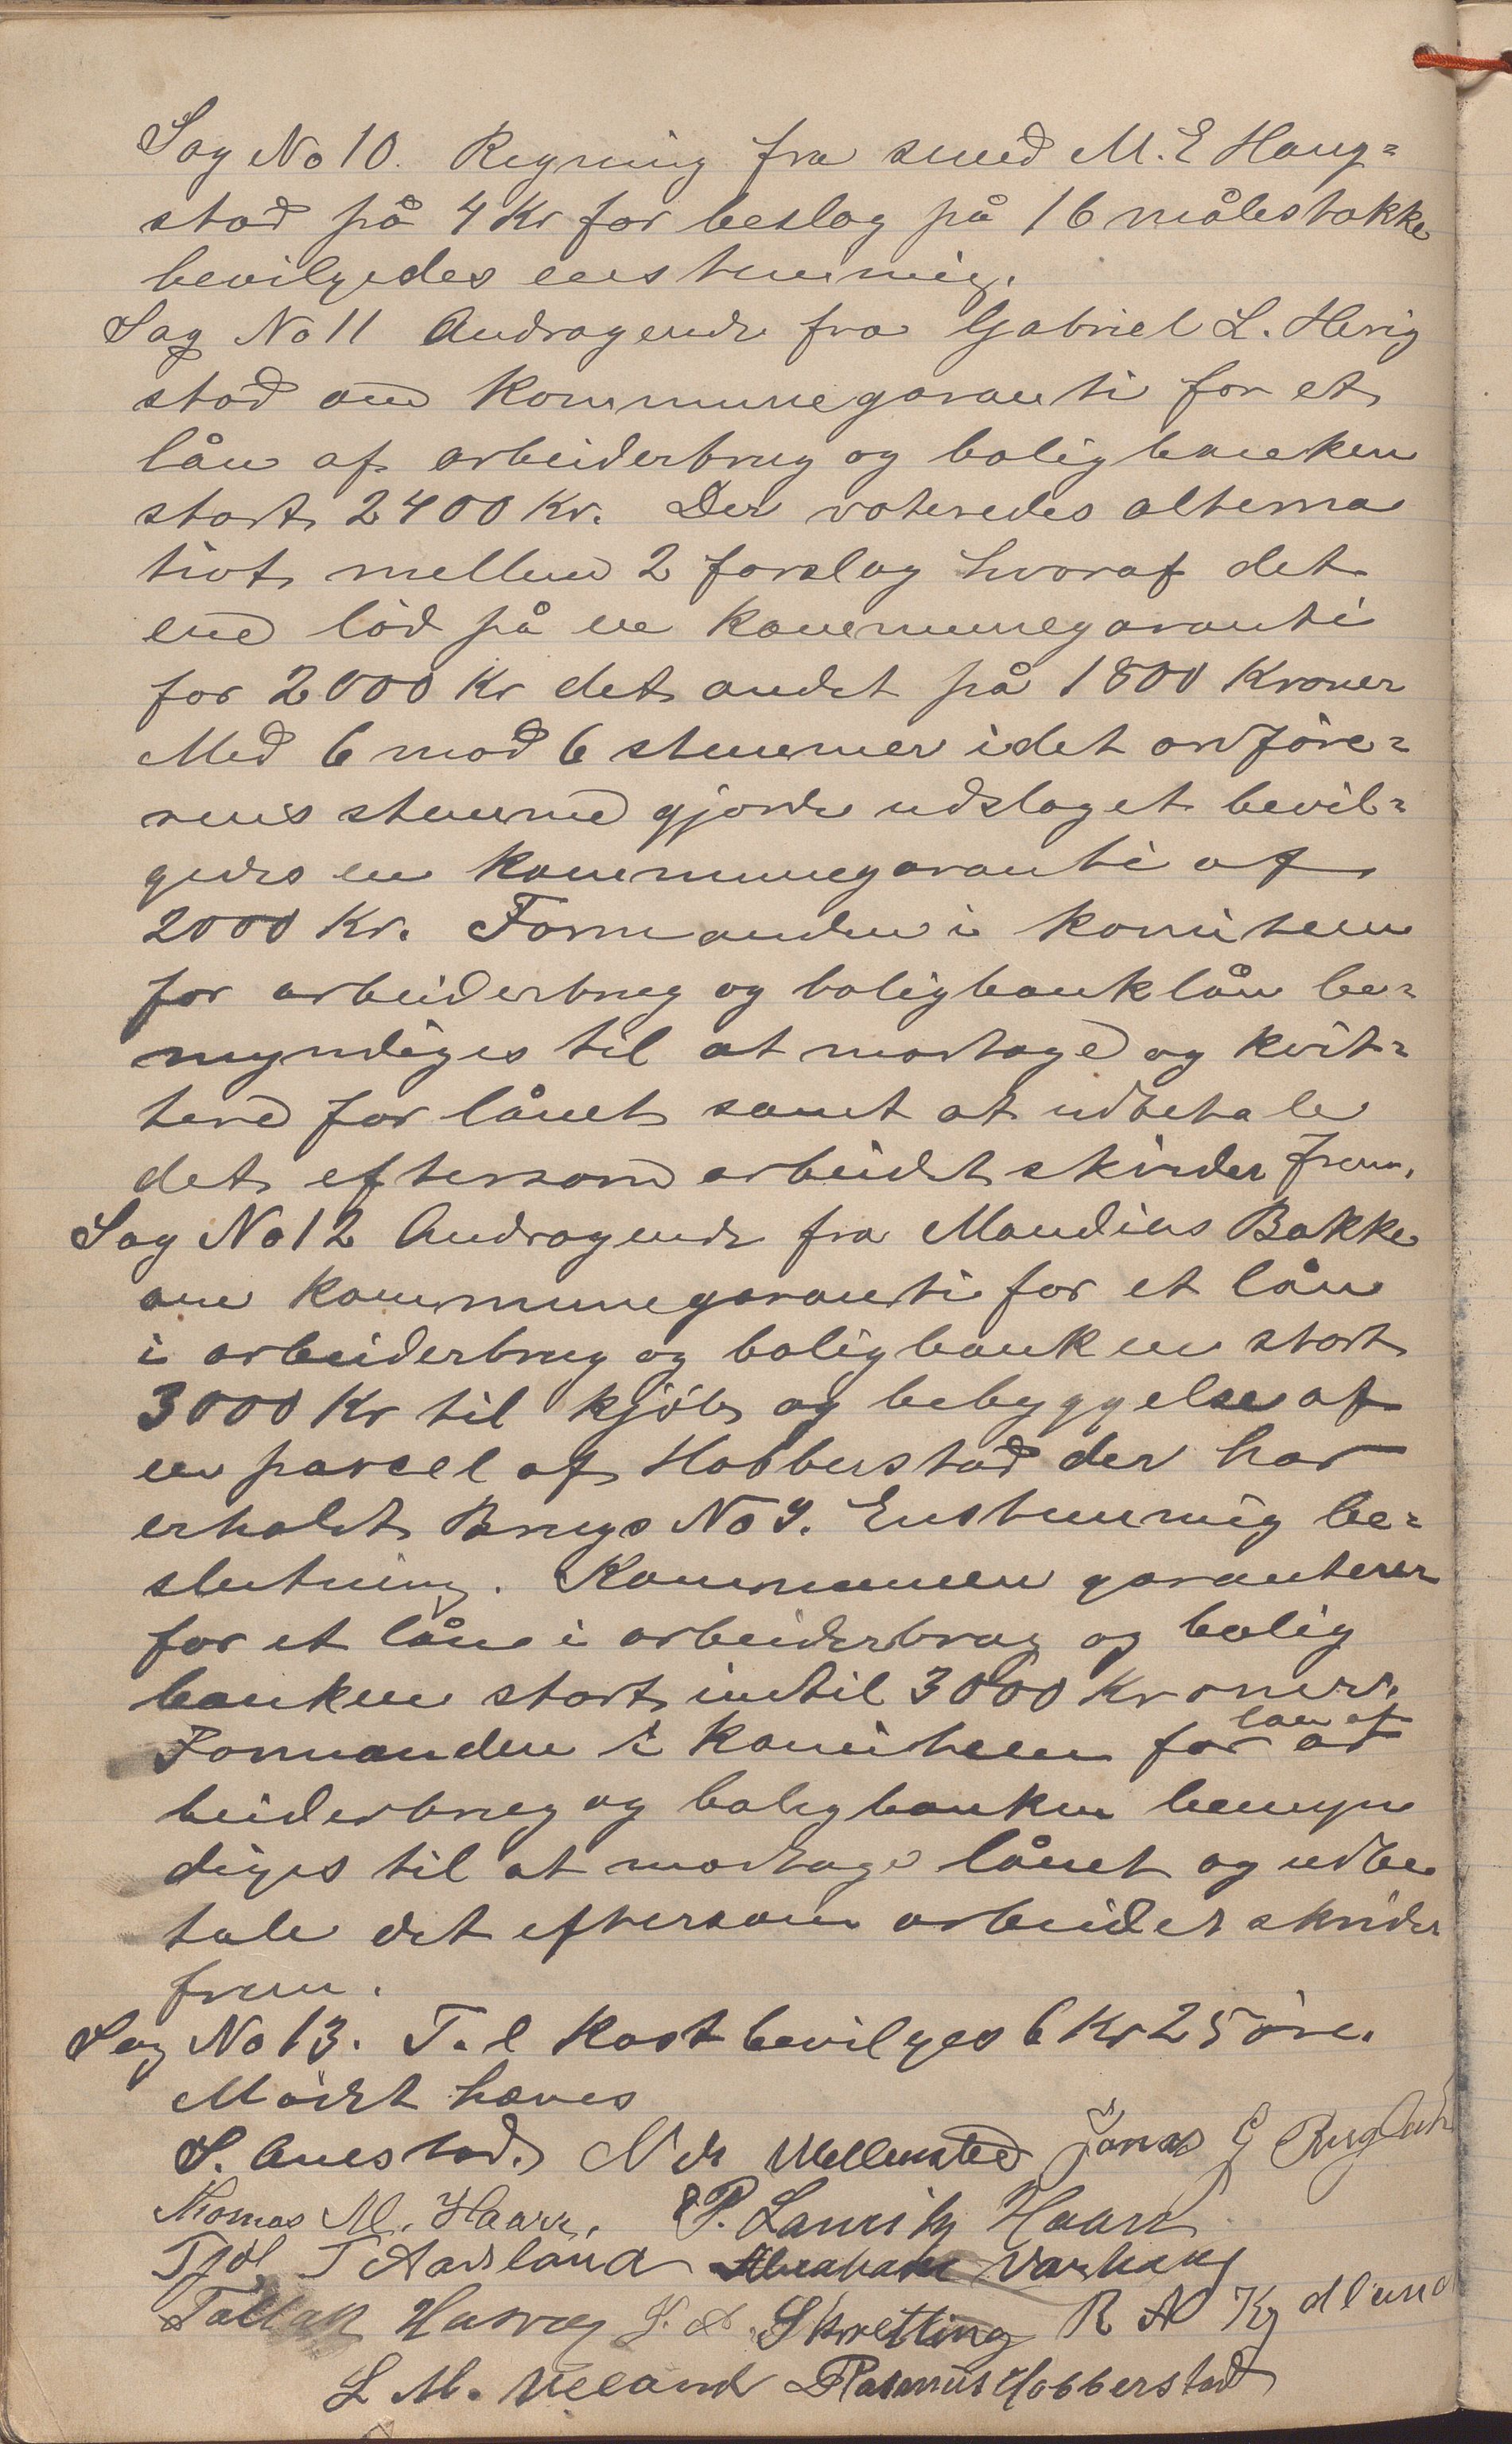 Sag No 10. Regning fra smed M. E Haug=
stad på 4 Kr for beslag på 16 målestokke
bevilgedes enstemmig.
Sag No 11 Andragende fra Gabriel L. Herig
stad om Kommunegaranti for et
lån af arbeiderbrug og boligbanken
stort 2400 Kr. Der voteredes alterna
tivt mellem 2 forslag hvoraf det
ene lød på en Kommunegaranti
for 2000 Kr det andet på 1800 Kroner
Med 6 mod 6 stemmer idet ordføre=
rens stemme gjorde udslaget bevil=
gedes en Kommunegaranti af
2000 Kr. Formanden i komiteen
for arbeiderbrug og boligbanklån be=
myndiges til at modtage og kvit=
tere for lånet samt at udbetale
det eftersom arbeidet skrider frem.
Sag No 12 Andragende fra Maudius Bakke
om kommunegaranti for et lån
i arbeiderbrug og boligbanken stort
3000 Kr til kjøb og bebyggelse af
en parcel af Hobberstad der har
erholdt Brugs No 9. Enstemmig be=
slutning. Kommunen garanterer
for et lån i arbeiderbrug og bolig
banken stort indtil 3000 Kroner.
Formanden i komiteen for lån af ar
beiderbrug og boligbanken bemyn
diges til at modtage lånet og udbe
tale det eftersom arbeidet skrider
frem.
Sag No 13. Til Kost bevilges 6 Kr 25 øre.
Mødet hæves
S. Auestad. N Mellemsted Jonas G
Thomas M. Haarr. P. Lauritz Haarr
T Aarsland Abraham Varhaug
Tallak Husvæg Skretting R A
L M. Ueland Rasmus Hobberstad